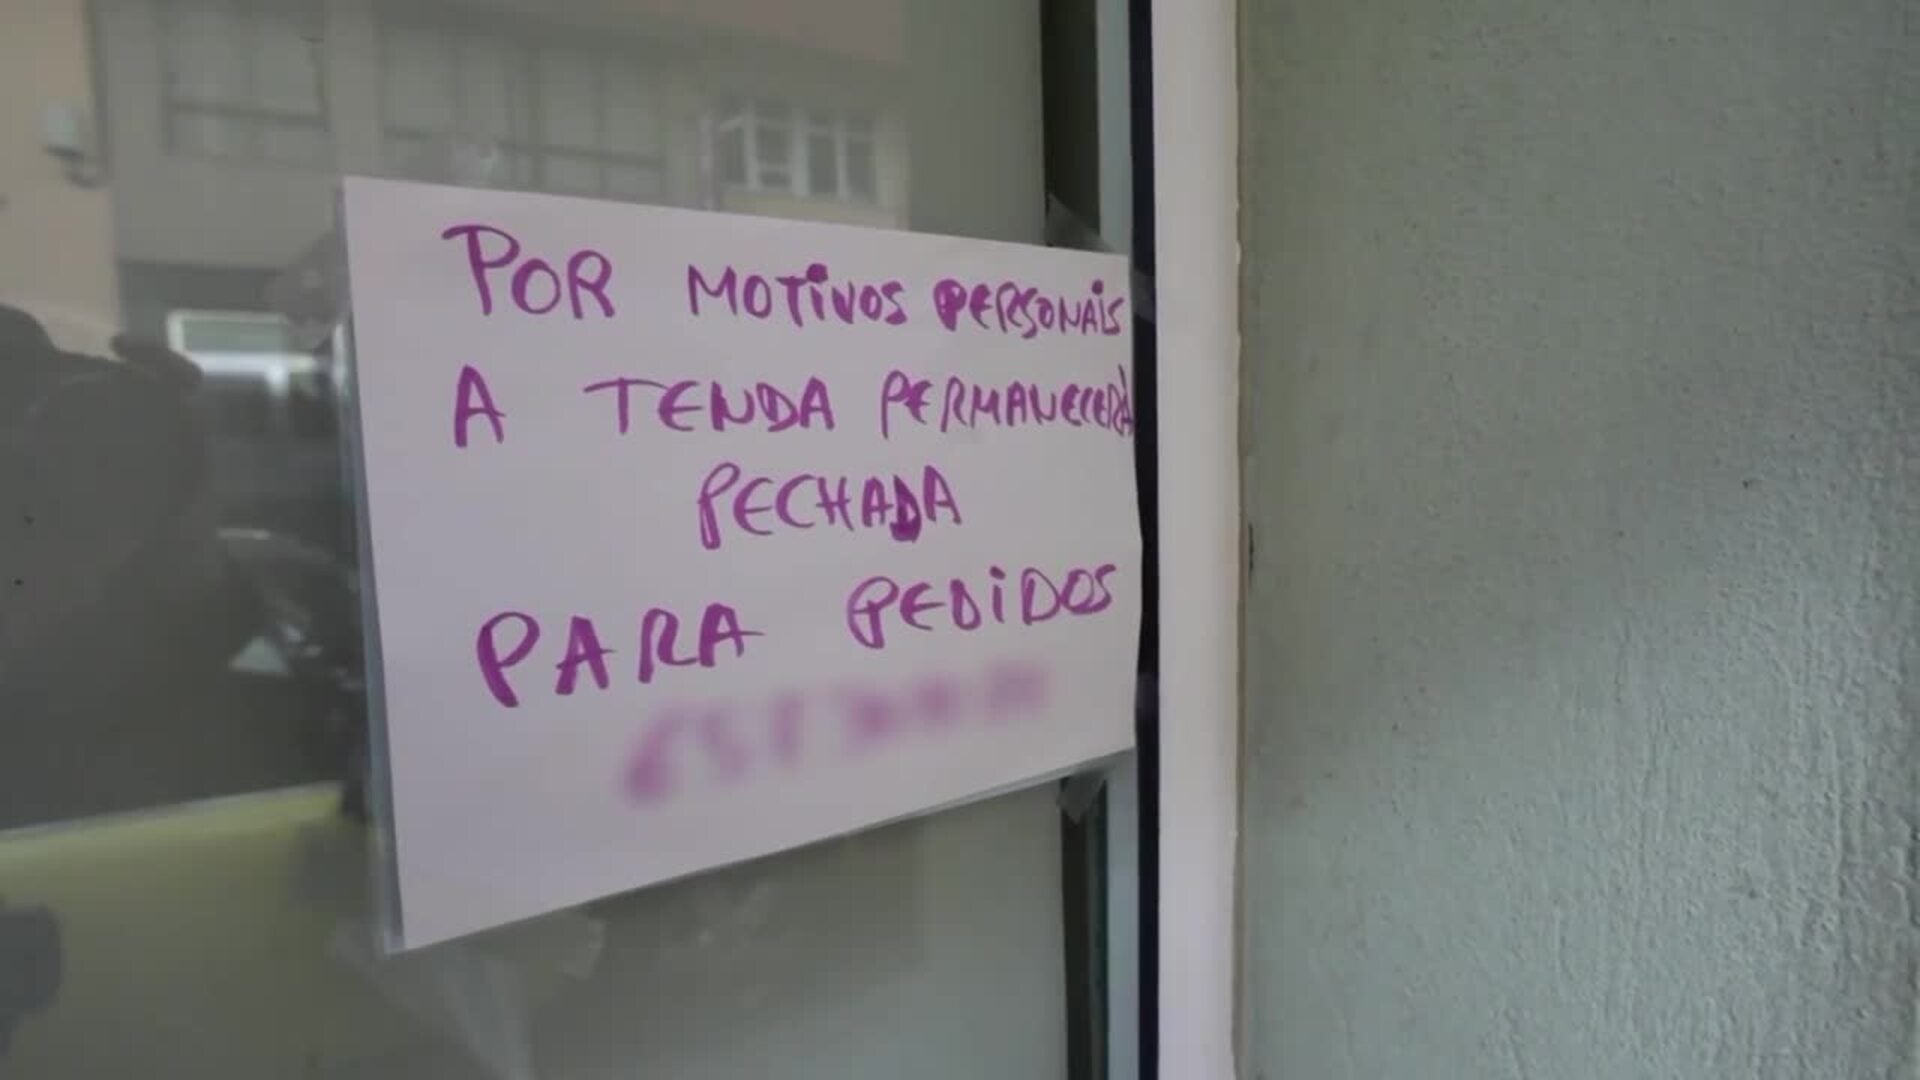 POR MOTIVOS PERSONAIS
A TENDA PERMANECERÀ
PECHADA
PARA PEDIDOS